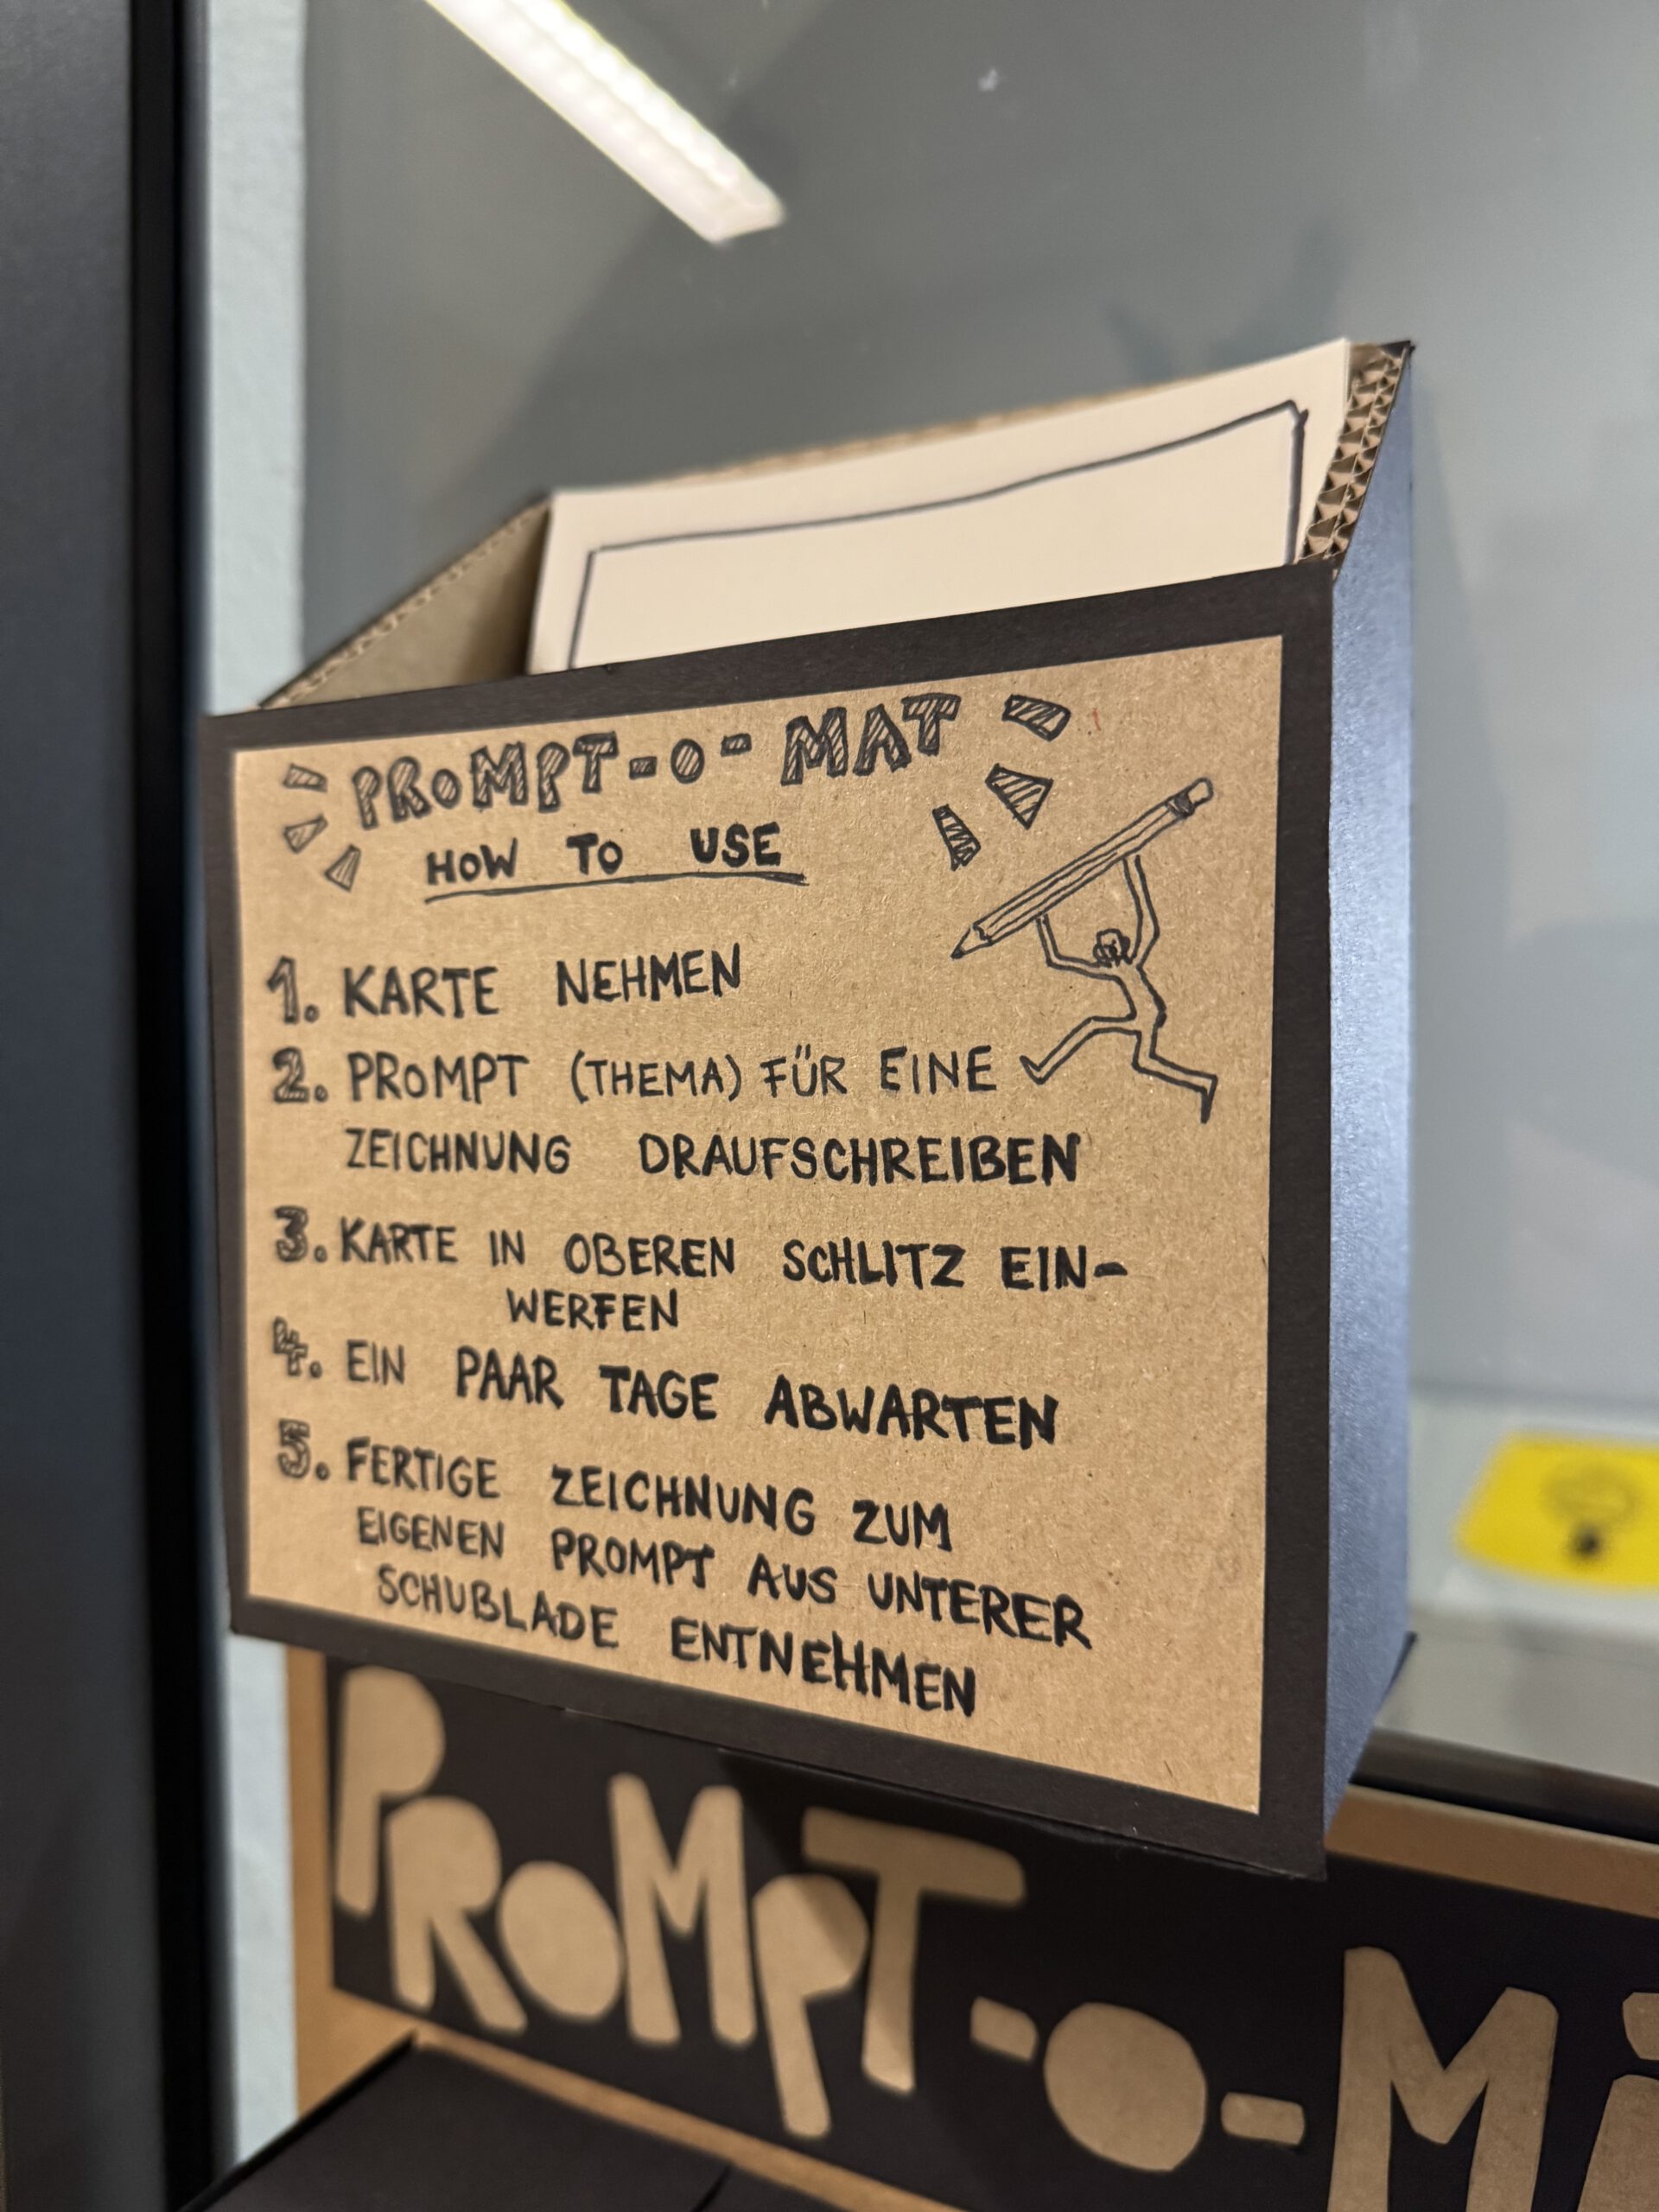 PROMPT-O-MAT
HOW TO USE
1. KARTE NEHMEN
2. PROMPT (THEMA) FÜR EINE
ZEICHNUNG DRAUFSCHREIBEN
3. KARTE IN OBEREN SCHLITZ EIN-
WERFEN
4. EIN PAAR TAGE ABWARTEN
5. FERTIGE ZEICHNUNG ZUM
EIGENEN PROMPT AUS UNTERER
SCHUBLADE ENTNEHMEN
PROMPT-O-M